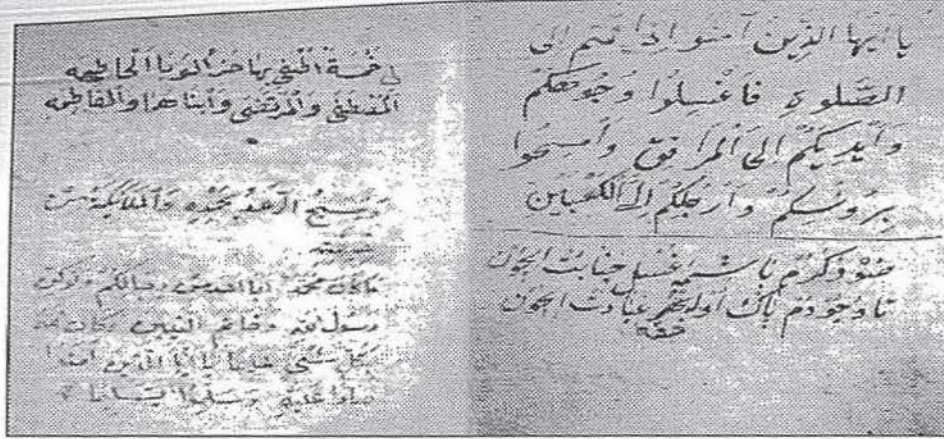 يا ايها الذين آمنوا اذا قمتم الى
الصَّلوةِ فَاغْسِلُوا وُجُوهَكُمْ
وَاَيْدِيَكُمْ اِلَى الْمَرَافِقِ وَامْسَحُوا
بِرُؤسِكُمْ وَاَرْجُلَكُمْ اِلَى الْكَعْبَيْنِ
صو دوكردم باشمه غسل جنابت ايچون
تا وجودم پاك اوله عبادت ايچون
حقه
لى خمسة اطفى بها حر الوبا الحاطمه
المصطفى والمرتضى وابناهما والفاطمه
ويسبح الرعد بحمده والملائكة من
خيفته
ما كان محمد ابا احد من رجالكم ولكن
رسول الله وخاتم النبيين وكان الله
بكل شئ عليما يا ايها الذين آمنوا
صلوا عليه وسلموا تسليما